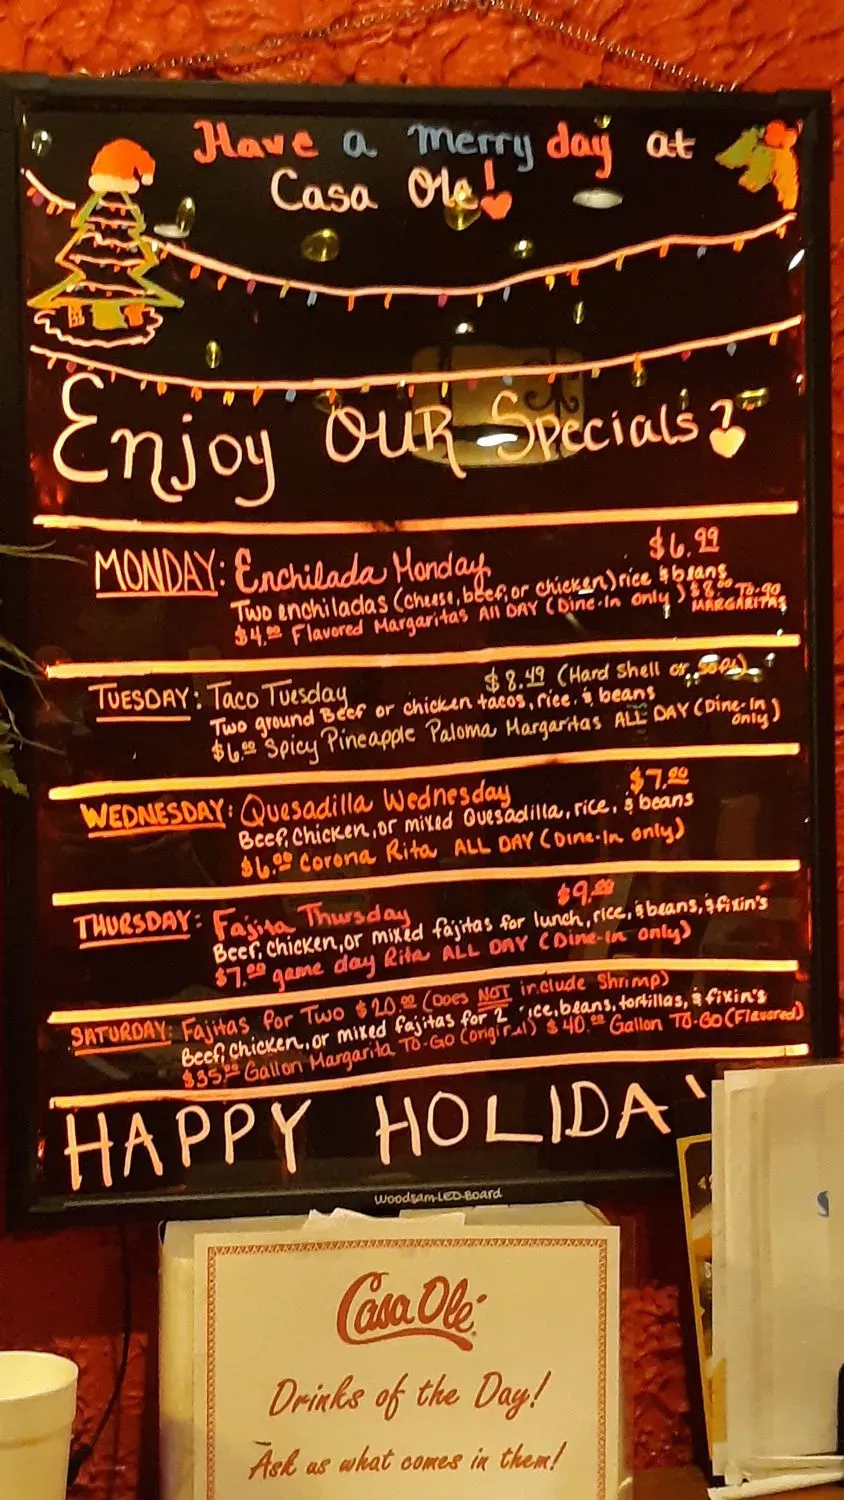 Have a merry day at
Casa Ole!
Enjoy OUR Specials!
MONDAY: Enchilada Monday $6.99
Two enchiladas (cheese, beef, or chicken) rice & beans
$4.00 Flavored Margaritas All DAY (Dine-In only) $8.00 To-go MARGARITAS
TUESDAY: Taco Tuesday $8.49 (Hard Shell or Soft)
Two ground Beef or chicken tacos, rice, & beans
$6.00 Spicy Pineapple Paloma Margaritas ALL DAY (Dine-In only)
WEDNESDAY: Quesadilla Wednesday $7.00
Beef, Chicken, or mixed Quesadilla, rice, & beans
$6.00 Corona Rita ALL DAY (Dine-In only)
THURSDAY: Fajita Thursday $9.00
Beef, Chicken, or mixed fajitas for lunch, rice, & beans, & fixin's
$7.00 game day Rita ALL DAY (Dine-In only)
SATURDAY: Fajitas for Two $20.00 (Does NOT include Shrimp)
Beef, Chicken, or mixed fajitas for 2 rice, beans, tortillas, & fixin's
$35.00 Gallon Margarita TO-GO (original) $40.00 Gallon TO-GO (Flavored)
HAPPY HOLIDA
Woodsam-LED-Board
Casa Olé
Drinks of the Day!
Ask us what comes in them!